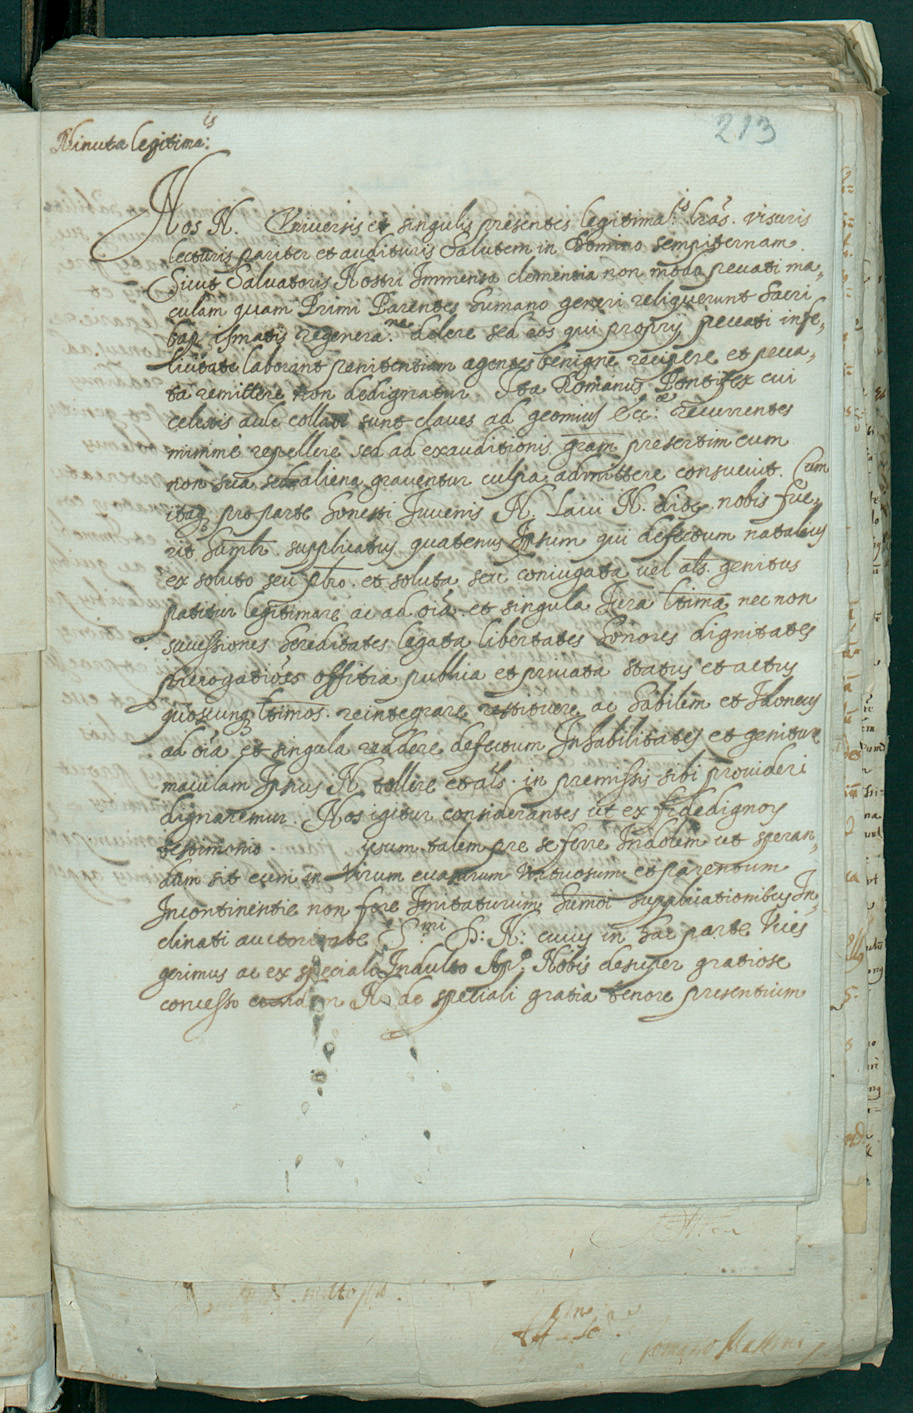 Minuta legitima:is
213
Nos N. Universis et singulis presentes legitima:is lras. visuris
lecturis pariter et audituris Salutem in Domino sempiternam.
Sicut Salvatoris Nostri Immensa clementia non modo peccati ma,
culam quam Primi Parentes humano generi reliquerunt Sacri
bap,ismatis regenera:ne delere sed eos qui proprij peccati infe,
licitate laborant penitentiam agentes benigne recipere et pecca,
ta remittere non dedignatur Ita Romanus Pontifex cui
celestis aule collate sunt claves ad gremium Ecc:e recurrentes
minime repellere sed ad exauditionis gram presertim cum
non sua sed aliena graventur culpa admittere consuevit. Cum
itaq pro parte honesti Juvenis N. Laici N. dioc. nobis fue,
rit humlr. supplicatus quatenus Ipsum qui defectum natalius
ex soluto seu pbro. et soluta seu coniugata vel als. genitus
patitur legitimare ac ad oia et singula Jura ltima nec non
successiones hereditates legata libertates honores dignitates
prerogativas offitia publica et privata status et actus
quoscunq ltimos. reintegrare restituere ac habilem et Idoneus
ad oia et singula reddere defectum Inhabilitates et geniture
maculam Ipsius N. tollere et als. in premissis sibi provideri
dignaremur. Nos igitur considerantes ut ex fidedignos
testimonio ipsum talem pre se ferre Indolem ut speran,
dum sit eum in Virum evasurum Virtuosum et parentum
Incontinentie non fore Imitaturum humoi supplicationibus In,
clinati auctoritate S.mi D: N: cuius in hac parte Vices
gerimus ac ex speciali Indulto Ap:o Nobis desuper gratiose
concesso eundem N. de speciali gratia tenore presentium